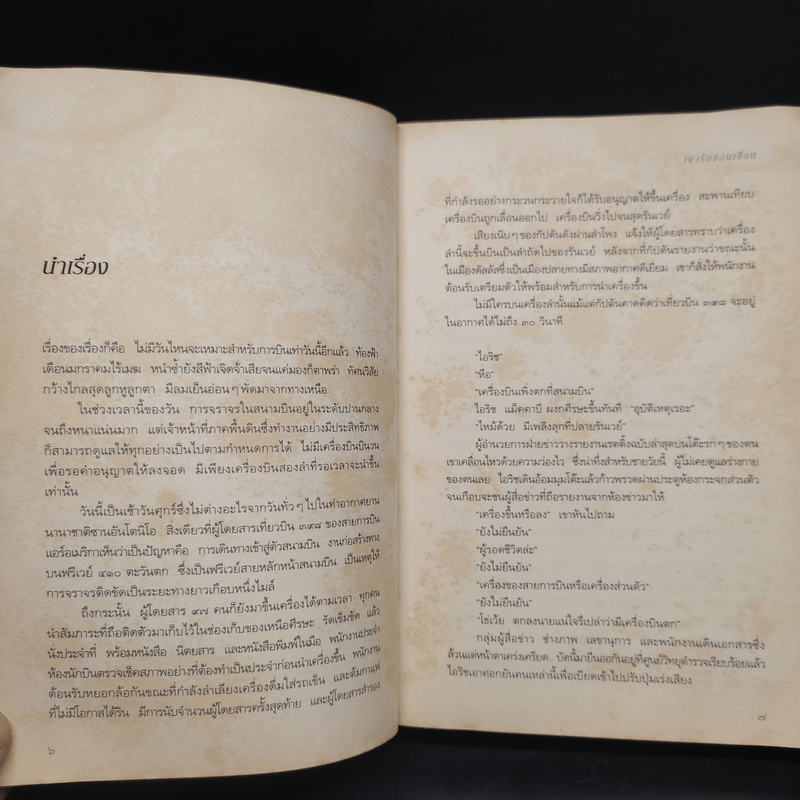 นำเรื่อง
เรื่องของเรื่องก็คือ ไม่มีวันไหนจะเหมาะสำหรับการบินเท่าวันนี้อีกแล้ว ท้องฟ้า
เดือนมกราคมไร้เมฆ หนำซ้ำยังสีฟ้าเจิดจ้าเสียจนแค่มองก็ตาพร่า ทัศนวิสัย
กว้างไกลสุดลูกหูลูกตา มีลมเย็นอ่อนๆ พัดมาจากทางเหนือ
ในช่วงเวลานี้ของวัน การจราจรในสนามบินอยู่ในระดับปานกลาง
จนถึงหนาแน่นมาก แต่เจ้าหน้าที่ภาคพื้นดินซึ่งทำงานอย่างมีประสิทธิภาพ
ก็สามารถดูแลให้ทุกอย่างเป็นไปตามกำหนดการได้ ไม่มีเครื่องบินบินวน
เพื่อรอคำอนุญาตให้ลงจอด มีเพียงเครื่องบินสองลำที่รอเวลาจะนำขึ้น
เท่านั้น
วันนี้เป็นเช้าวันศุกร์ซึ่งไม่ต่างอะไรจากวันทั่วๆ ไปในท่าอากาศยาน
นานาชาติซานอันโตนิโอ สิ่งเดียวที่ผู้โดยสารเที่ยวบิน ๓๙๘ ของสายการบิน
แอร์อเมริกาเห็นว่าเป็นปัญหาคือ การเดินทางเข้าสู่ตัวสนามบิน งานก่อสร้างทาง
บนฟรีเวย์ ๔๑๐ ตะวันตก ซึ่งเป็นฟรีเวย์สายหลักหน้าสนามบิน เป็นเหตุให้
การจราจรติดขัดเป็นระยะทางยาวเกือบหนึ่งไมล์
ถึงกระนั้น ผู้โดยสาร ๙๗ คนก็ยังมาขึ้นเครื่องได้ตามเวลา ทุกคน
นำสัมภาระที่ถือติดตัวมาเก็บไว้ในช่องเก็บของเหนือศีรษะ รัดเข็มขัด แล้ว
นั่งประจำที่ พร้อมหนังสือ นิตยสาร และหนังสือพิมพ์ในมือ พนักงานประจำ
ห้องนักบินตรวจเช็คสภาพอย่างที่ต้องทำเป็นประจำก่อนนำเครื่องขึ้น พนักงาน
ต้อนรับหยอกล้อกันขณะที่กำลังลำเลียงเครื่องดื่มใส่รถเข็น และต้มกาแฟ
ที่ไม่มีโอกาสได้ริน มีการนับจำนวนผู้โดยสารครั้งสุดท้าย และผู้โดยสารสำรอง
๖
เงารักซ่อนเงื่อน
ที่กำลังรออย่างกระวนกระวายใจก็ได้รับอนุญาตให้ขึ้นเครื่อง สะพานเทียบ
เครื่องบินถูกเลื่อนออกไป เครื่องบินวิ่งไปจนสุดรันเวย์
เสียงเนิบๆ ของกัปตันดังผ่านลำโพง แจ้งให้ผู้โดยสารทราบว่าเครื่อง
ลำนี้จะขึ้นบินเป็นลำถัดไปของรันเวย์ หลังจากที่กัปตันรายงานว่าขณะนั้น
ในเมืองดัลลัสซึ่งเป็นเมืองปลายทางมีสภาพอากาศดีเยี่ยม เขาก็สั่งให้พนักงาน
ต้อนรับเตรียมตัวให้พร้อมสำหรับการนำเครื่องขึ้น
ไม่มีใครบนเครื่องลำนั้นแม้แต่กัปตันคาดคิดว่าเที่ยวบิน ๓๙๘ จะอยู่
ในอากาศได้ไม่ถึง ๓๐ วินาที
“ไอริช”
“หือ”
“เครื่องบินเพิ่งตกที่สนามบิน”
ไอริช แม็คคาบี ผงกศีรษะขึ้นทันที “อุบัติเหตุเรอะ”
“ไหม้ด้วย มีเพลิงลุกที่ปลายรันเวย์”
ผู้อำนวยการฝ่ายข่าววางรายงานเรตติ้งฉบับล่าสุดบนโต๊ะรกๆ ของตน
เขาเคลื่อนไหวด้วยความว่องไว ซึ่งน่าทึ่งสำหรับชายวัยนี้ ผู้ไม่เคยดูแลร่างกาย
ของตนเลย ไอริชเดินอ้อมมุมโต๊ะแล้วก้าวพรวดผ่านประตูห้องกระจกส่วนตัว
จนเกือบจะชนผู้สื่อข่าวที่ถือรายงานจากห้องข่าวมาให้
“เครื่องขึ้นหรือลง” เขาหันไปถาม
“ยังไม่ยืนยัน”
“ผู้รอดชีวิตล่ะ”
“ยังไม่ยืนยัน”
“เครื่องของสายการบินหรือเครื่องส่วนตัว”
“ยังไม่ยืนยัน”
“โธ่เว้ย ตกลงนายแน่ใจรึเปล่าว่ามีเครื่องบินตก”
กลุ่มผู้สื่อข่าว ช่างภาพ เลขานุการ และพนักงานเดินเอกสารซึ่ง
ล้วนแต่หน้าตาเคร่งเครียด บัดนี้มายืนออกันอยู่ที่ศูนย์วิทยุตำรวจเรียบร้อยแล้ว
ไอริชเอาศอกยันคนเหล่านี้เพื่อเบียดเข้าไปปรับปุ่มเร่งเสียง
๗